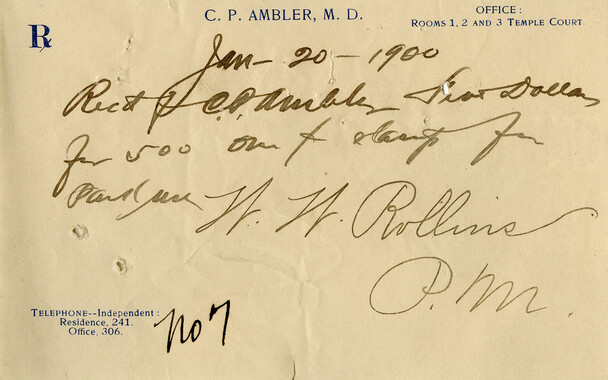 C. P. AMBLER, M. D.
OFFICE:
ROOMS 1, 2 AND 3 TEMPLE COURT.
℞
Jan - 20 - 1900
Recd of C P Ambler Five Dollars
for 500 one ¢ stamps for
Park use
W. W. Rollins
P. M.
TELEPHONE--Independent:
Residence, 241.
Office, 306.
No 7